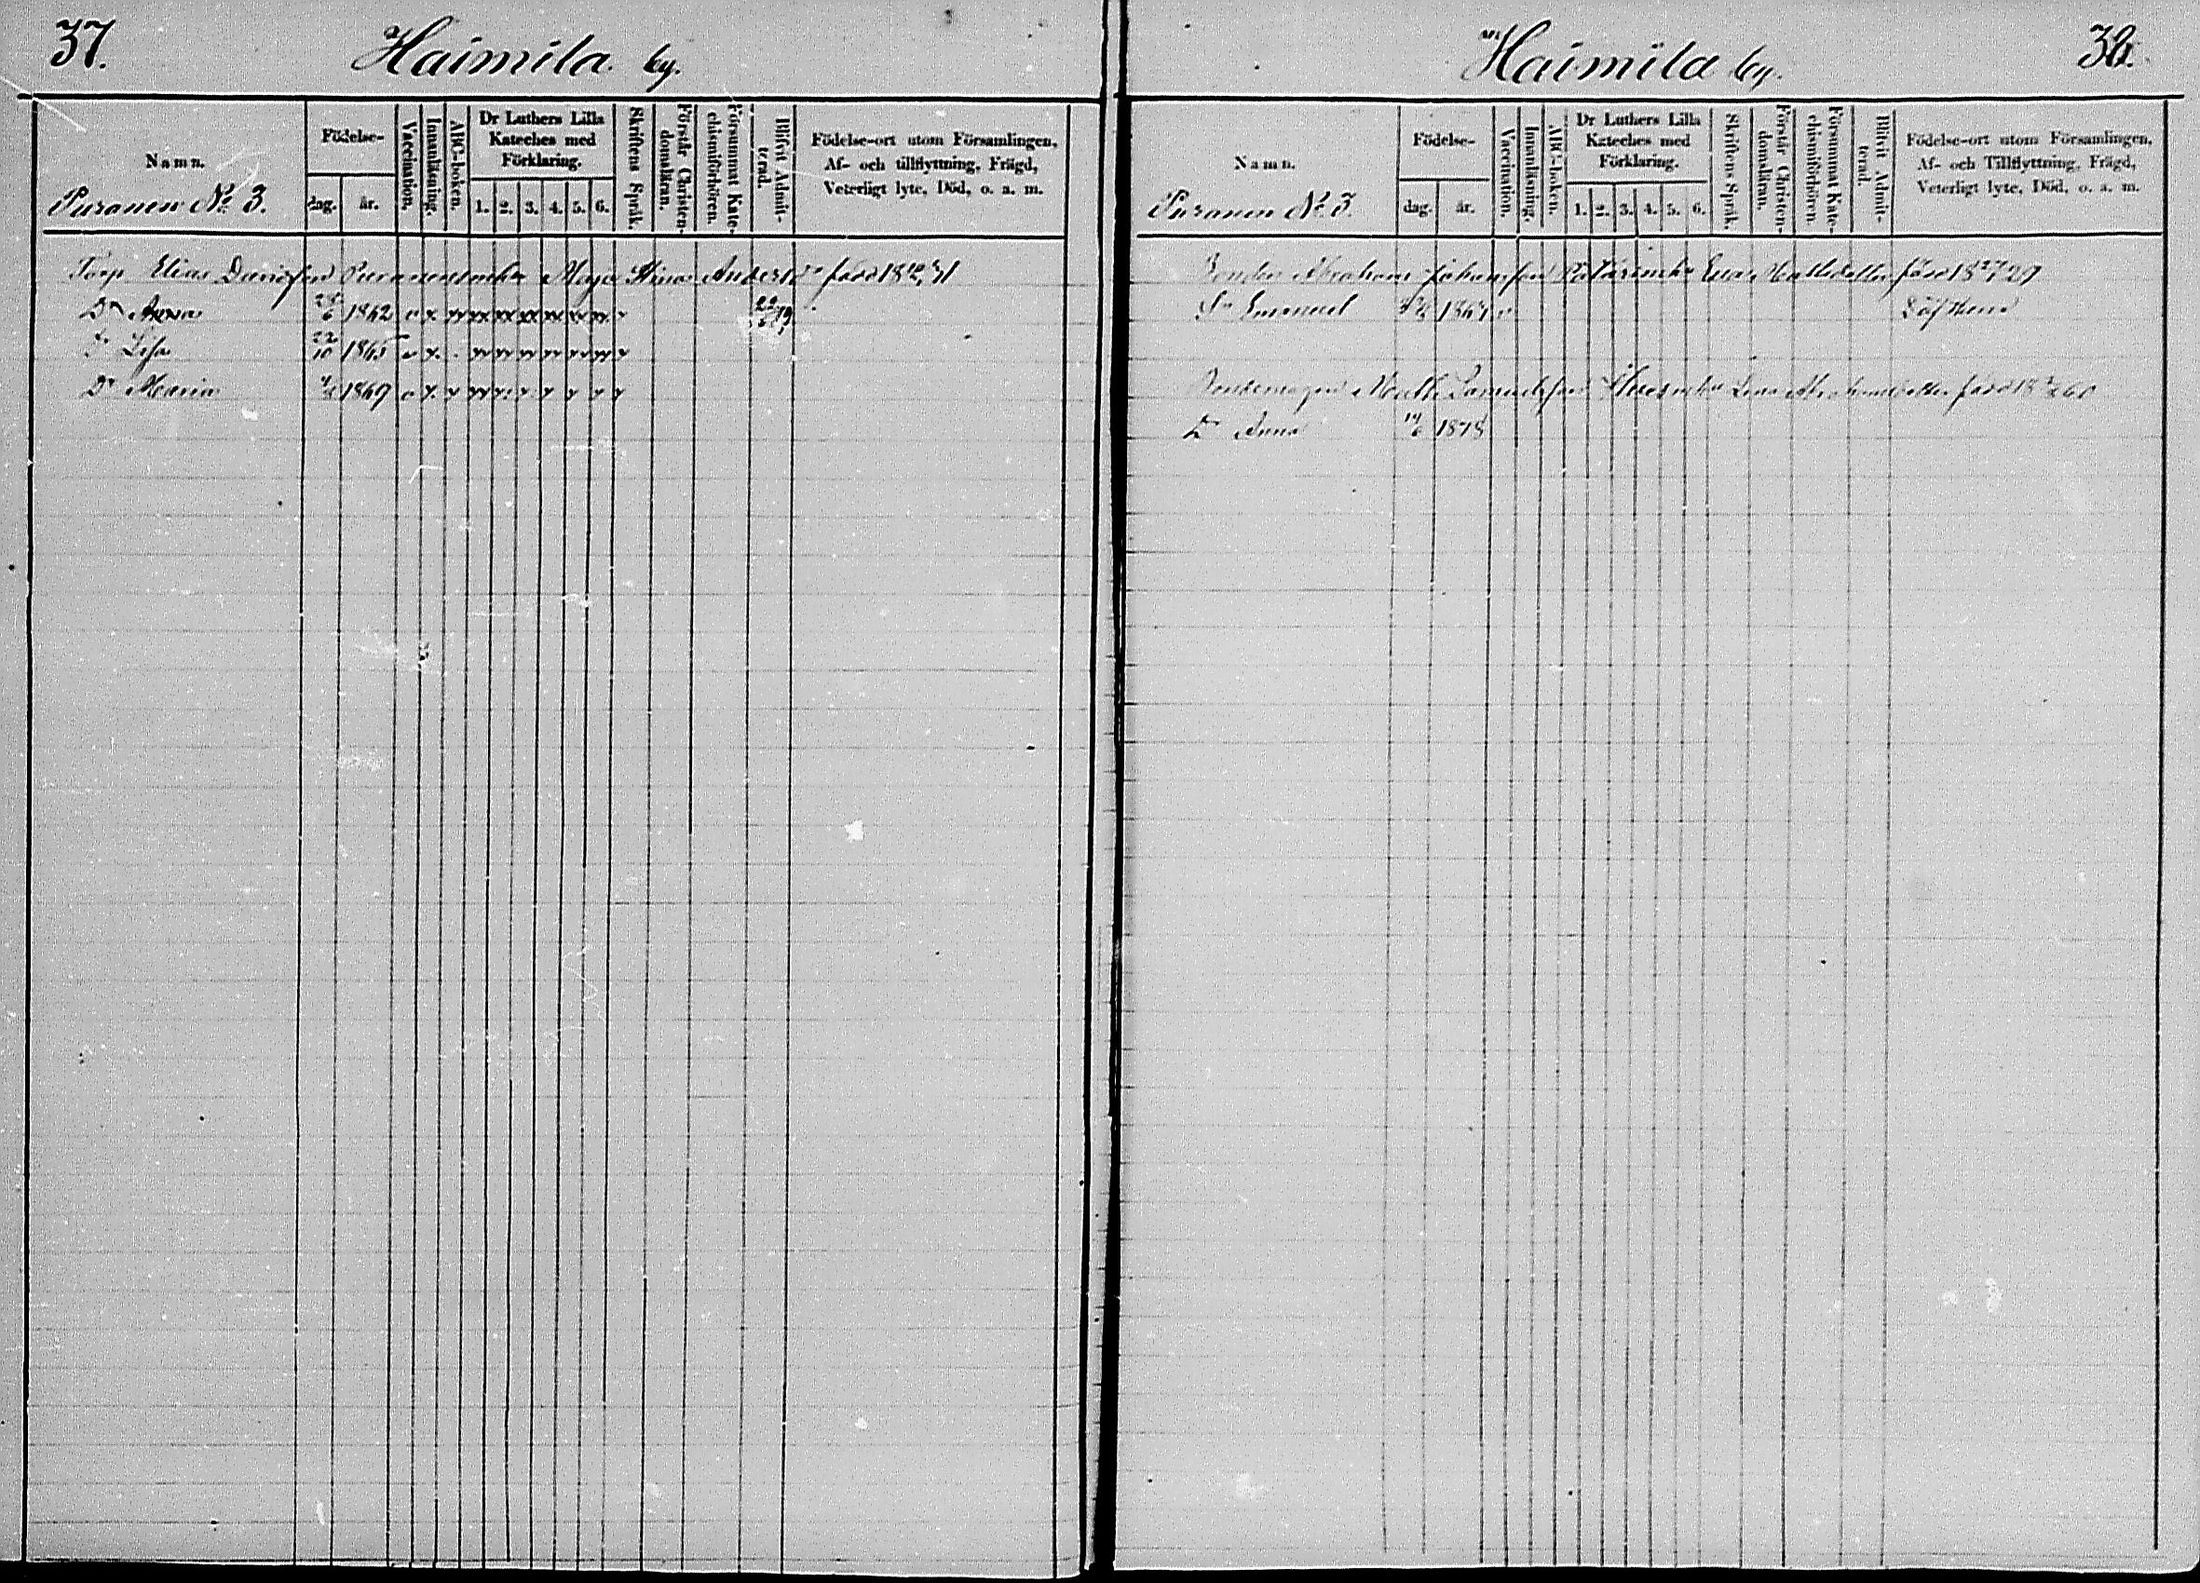 37.
Haimila by.
Namn.
Födelse-
dag. år.
Vaccination.
Innanläsning.
ABC-boken.
Dr Luthers Lilla
Kateches med
Förklaring.
1. 2. 3. 4. 5. 6.
Skriftens Språk.
Förstår Christen-
domsläran.
Försummat Kate-
chismiförhören.
Blifvit Admit-
terad.
Födelse-ort utom Församlingen,
Af- och tillflyttning, Frägd,
Veterligt lyte, Död, o. a. m.
Puranen No 3.
Torp Elias Davidsson Maja Stina född 18
Dr Anna 1862 22/6 79
Dr Lisa 22/10 1865
Dr Maria 1869
Haimila by.
38.
Namn.
Födelse-
dag. år.
Vaccination.
Innanläsning.
ABC-boken.
Dr Luthers Lilla
Kateches med
Förklaring.
1. 2. 3. 4. 5. 6.
Skriftens Språk.
Förstår Christen-
domsläran.
Försummat Kate-
chismiförhören.
Blifvit Admit-
terad.
Födelse-ort utom Församlingen,
Af- och Tillflyttning, Frägd,
Veterligt lyte, Död, o. a. m.
Puranen No 3.
Bonden Abraham Johansson Eva född 18
Sn Emanuel 1867
Math. Samuelsson Lena född 18
Dr Anna 1878